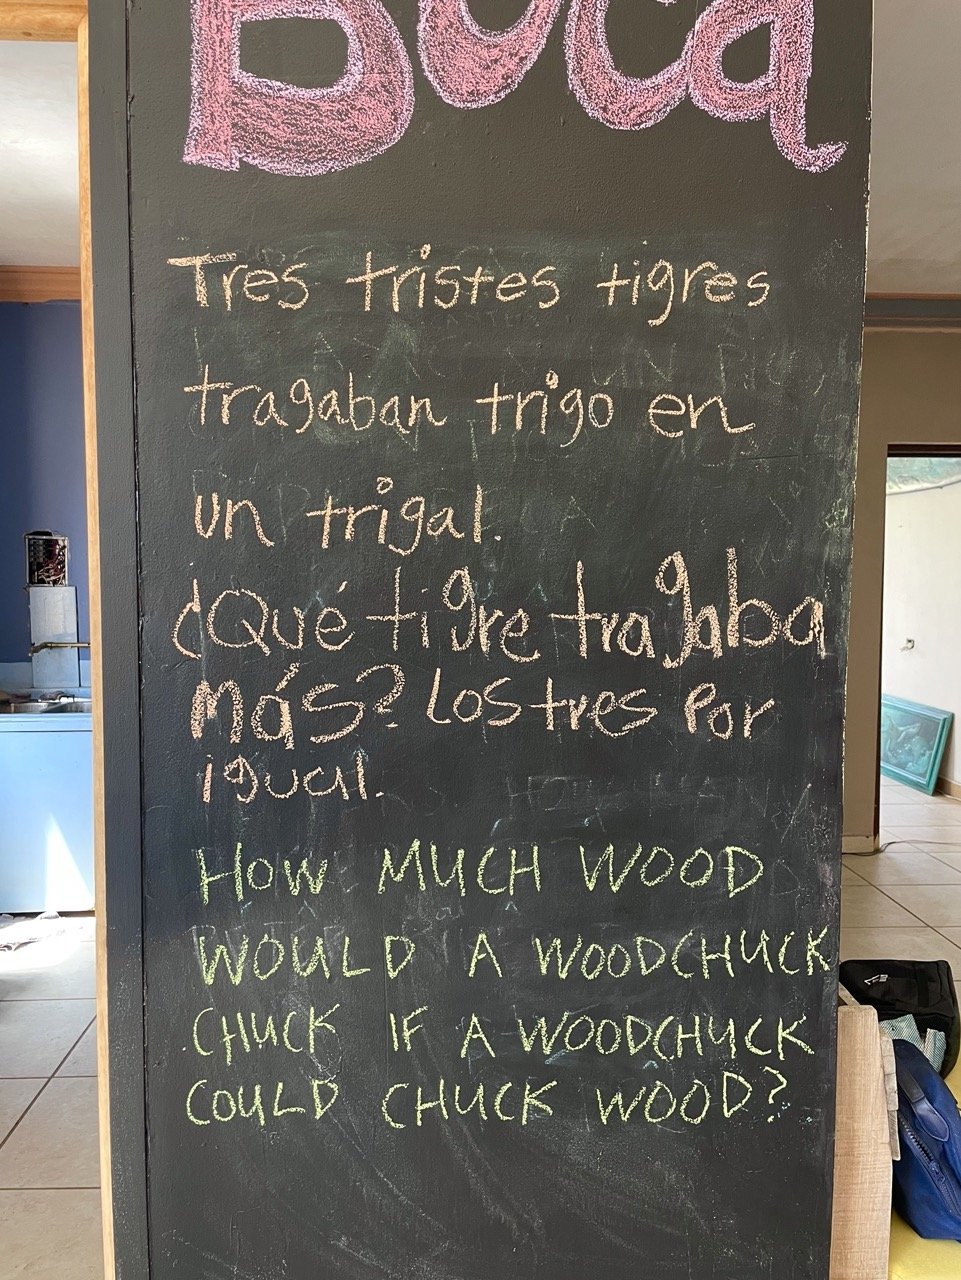 Boca
Tres tristes tigres
tragaban trigo en
un trigal.
¿Qué tigre tragaba
más? Los tres por
igual.
HOW MUCH WOOD
WOULD A WOODCHUCK
CHUCK IF A WOODCHUCK
COULD CHUCK WOOD?